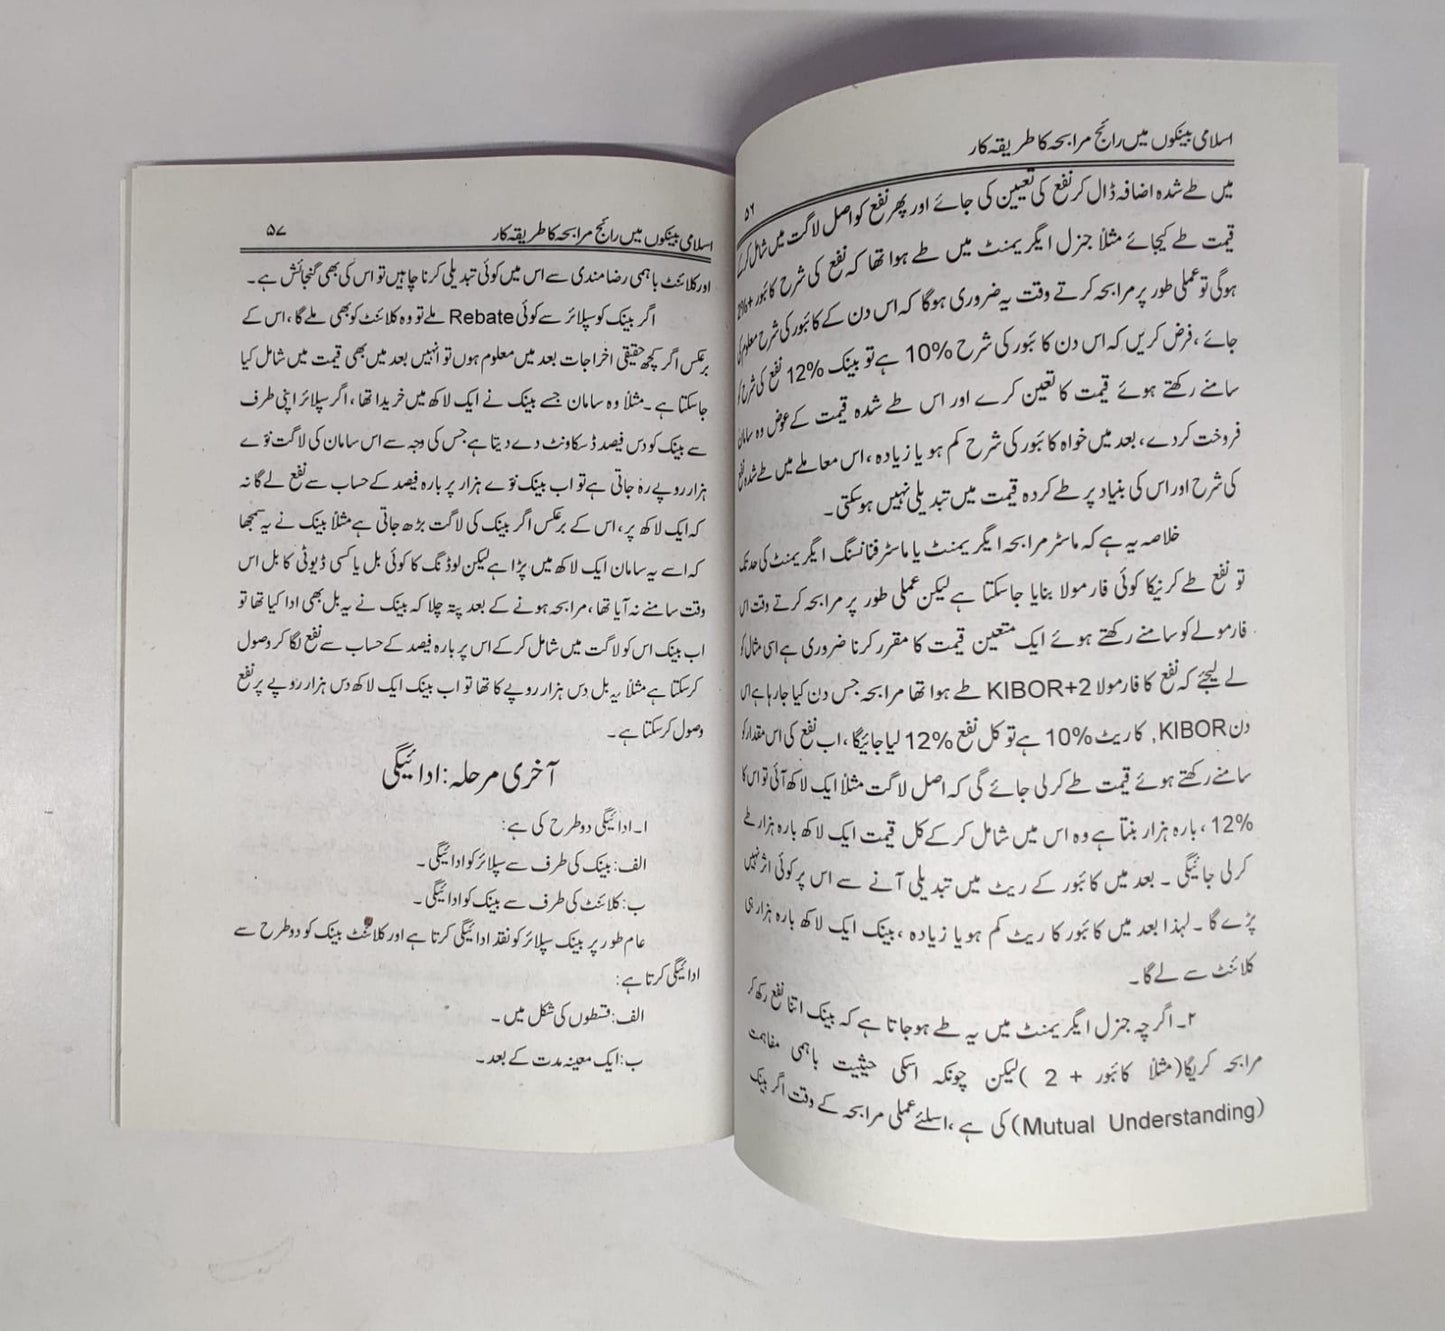 اسلامی بینکوں میں رائج مرابحہ کا طریقہ کار
۵۶
میں طے شدہ اضافہ ڈال کر نفع کی تعیین کی جائے اور پھر نفع کو اصل لاگت میں شامل کر کے
قیمت طے کیجائے مثلاً جنرل ایگریمنٹ میں طے ہوا تھا کہ نفع کی شرح کائبور +2%
ہوگی تو عملی طور پر مرابحہ کرتے وقت یہ ضروری ہوگا کہ اس دن کے کائبور کی شرح معلوم کی
جائے ،فرض کریں کہ اس دن کائبور کی شرح 10% ہے تو بینک 12% نفع کی شرح کو
سامنے رکھتے ہوئے قیمت کا تعین کرے اور اس طے شدہ قیمت کے عوض وہ سامان
فروخت کردے، بعد میں خواہ کائبور کی شرح کم ہو یا زیادہ ،اس معاملے میں طے شدہ نفع
کی شرح اور اس کی بنیاد پر طے کردہ قیمت میں تبدیلی نہیں ہوسکتی۔
خلاصہ یہ ہے کہ ماسٹر مرابحہ ایگریمنٹ یا ماسٹر فنانسنگ ایگریمنٹ کی حد تک
تو نفع طے کرنیکا کوئی فارمولا بنایا جاسکتا ہے لیکن عملی طور پر مرابحہ کرتے وقت اس
فارمولے کو سامنے رکھتے ہوئے ایک متعین قیمت کا مقرر کرنا ضروری ہے اسی مثال کو
لے لیجئے کہ نفع کا فارمولا KIBOR+2 طے ہوا تھا مرابحہ جس دن کیا جارہا ہے اس
دن KIBOR, کا ریٹ 10% ہے تو کل نفع 12% لیا جائیگا ،اب نفع کی اس مقدار کو
سامنے رکھتے ہوئے قیمت طے کر لی جائے گی کہ اصل لاگت مثلاً ایک لاکھ آئی تو اس کا
12% ،بارہ ہزار بنتا ہے وہ اس میں شامل کر کے کل قیمت ایک لاکھ بارہ ہزار طے
کرلی جائیگی ۔ بعد میں کائبور کے ریٹ میں تبدیلی آنے سے اس پر کوئی اثر نہیں
پڑے گا ۔لہذا بعد میں کائبور کا ریٹ کم ہو یا زیادہ ،بینک ایک لاکھ بارہ ہزار ہی
کلائنٹ سے لے گا ۔
۲۔اگرچہ جنرل ایگریمنٹ میں یہ طے ہوجاتا ہے کہ بینک اتنا نفع رکھ کر
مرابحہ کریگا(مثلاً کائبور + 2 )لیکن چونکہ اسکی حیثیت باہمی مفاہمت
(Mutual Understanding) کی ہے ،اسلئے عملی مرابحہ کے وقت اگر بینک
اسلامی بینکوں میں رائج مرابحہ کا طریقہ کار
۵۷
اور کلائنٹ باہمی رضامندی سے اس میں کوئی تبدیلی کرنا چاہیں تو اس کی بھی گنجائش ہے ۔
اگر بینک کو سپلائر سے کوئی Rebate ملے تو وہ کلائنٹ کو بھی ملے گا ،اس کے
برعکس اگر کچھ حقیقی اخراجات بعد میں معلوم ہوں تو انہیں بعد میں بھی قیمت میں شامل کیا
جاسکتا ہے ۔مثلاً وہ سامان جسے بینک نے ایک لاکھ میں خریدا تھا ،اگر سپلائر اپنی طرف
سے بینک کو دس فیصد ڈسکاونٹ دے دیتا ہے جس کی وجہ سے اس سامان کی لاگت نوّے
ہزار روپے رہ جاتی ہے تو اب بینک نوّے ہزار پر بارہ فیصد کے حساب سے نفع لے گا نہ
کہ ایک لاکھ پر ،اس کے برعکس اگر بینک کی لاگت بڑھ جاتی ہے مثلاً بینک نے یہ سمجھا
کہ اسے یہ سامان ایک لاکھ میں پڑا ہے لیکن لوڈنگ کا کوئی بل یا کسی ڈیوٹی کا بل اس
وقت سامنے نہ آیا تھا ،مرابحہ ہونے کے بعد پتہ چلا کہ بینک نے یہ بل بھی ادا کیا تھا تو
اب بینک اس کو لاگت میں شامل کر کے اس پر بارہ فیصد کے حساب سے نفع لگا کر وصول
کرسکتا ہے مثلاً یہ بل دس ہزار روپے کا تھا تو اب بینک ایک لاکھ دس ہزار روپے پر نفع
وصول کرسکتا ہے ۔
آخری مرحلہ :ادائیگی
۱۔ادائیگی دو طرح کی ہے:
الف: بینک کی طرف سے سپلائر کو ادائیگی ۔
ب: کلائنٹ کی طرف سے بینک کو ادائیگی ۔
عام طور پر بینک سپلائر کو نقد ادائیگی کرتا ہے اور کلائنٹ بینک کو دو طرح سے
ادائیگی کرتا ہے:
الف: قسطوں کی شکل میں ۔
ب:ایک معینہ مدت کے بعد ۔